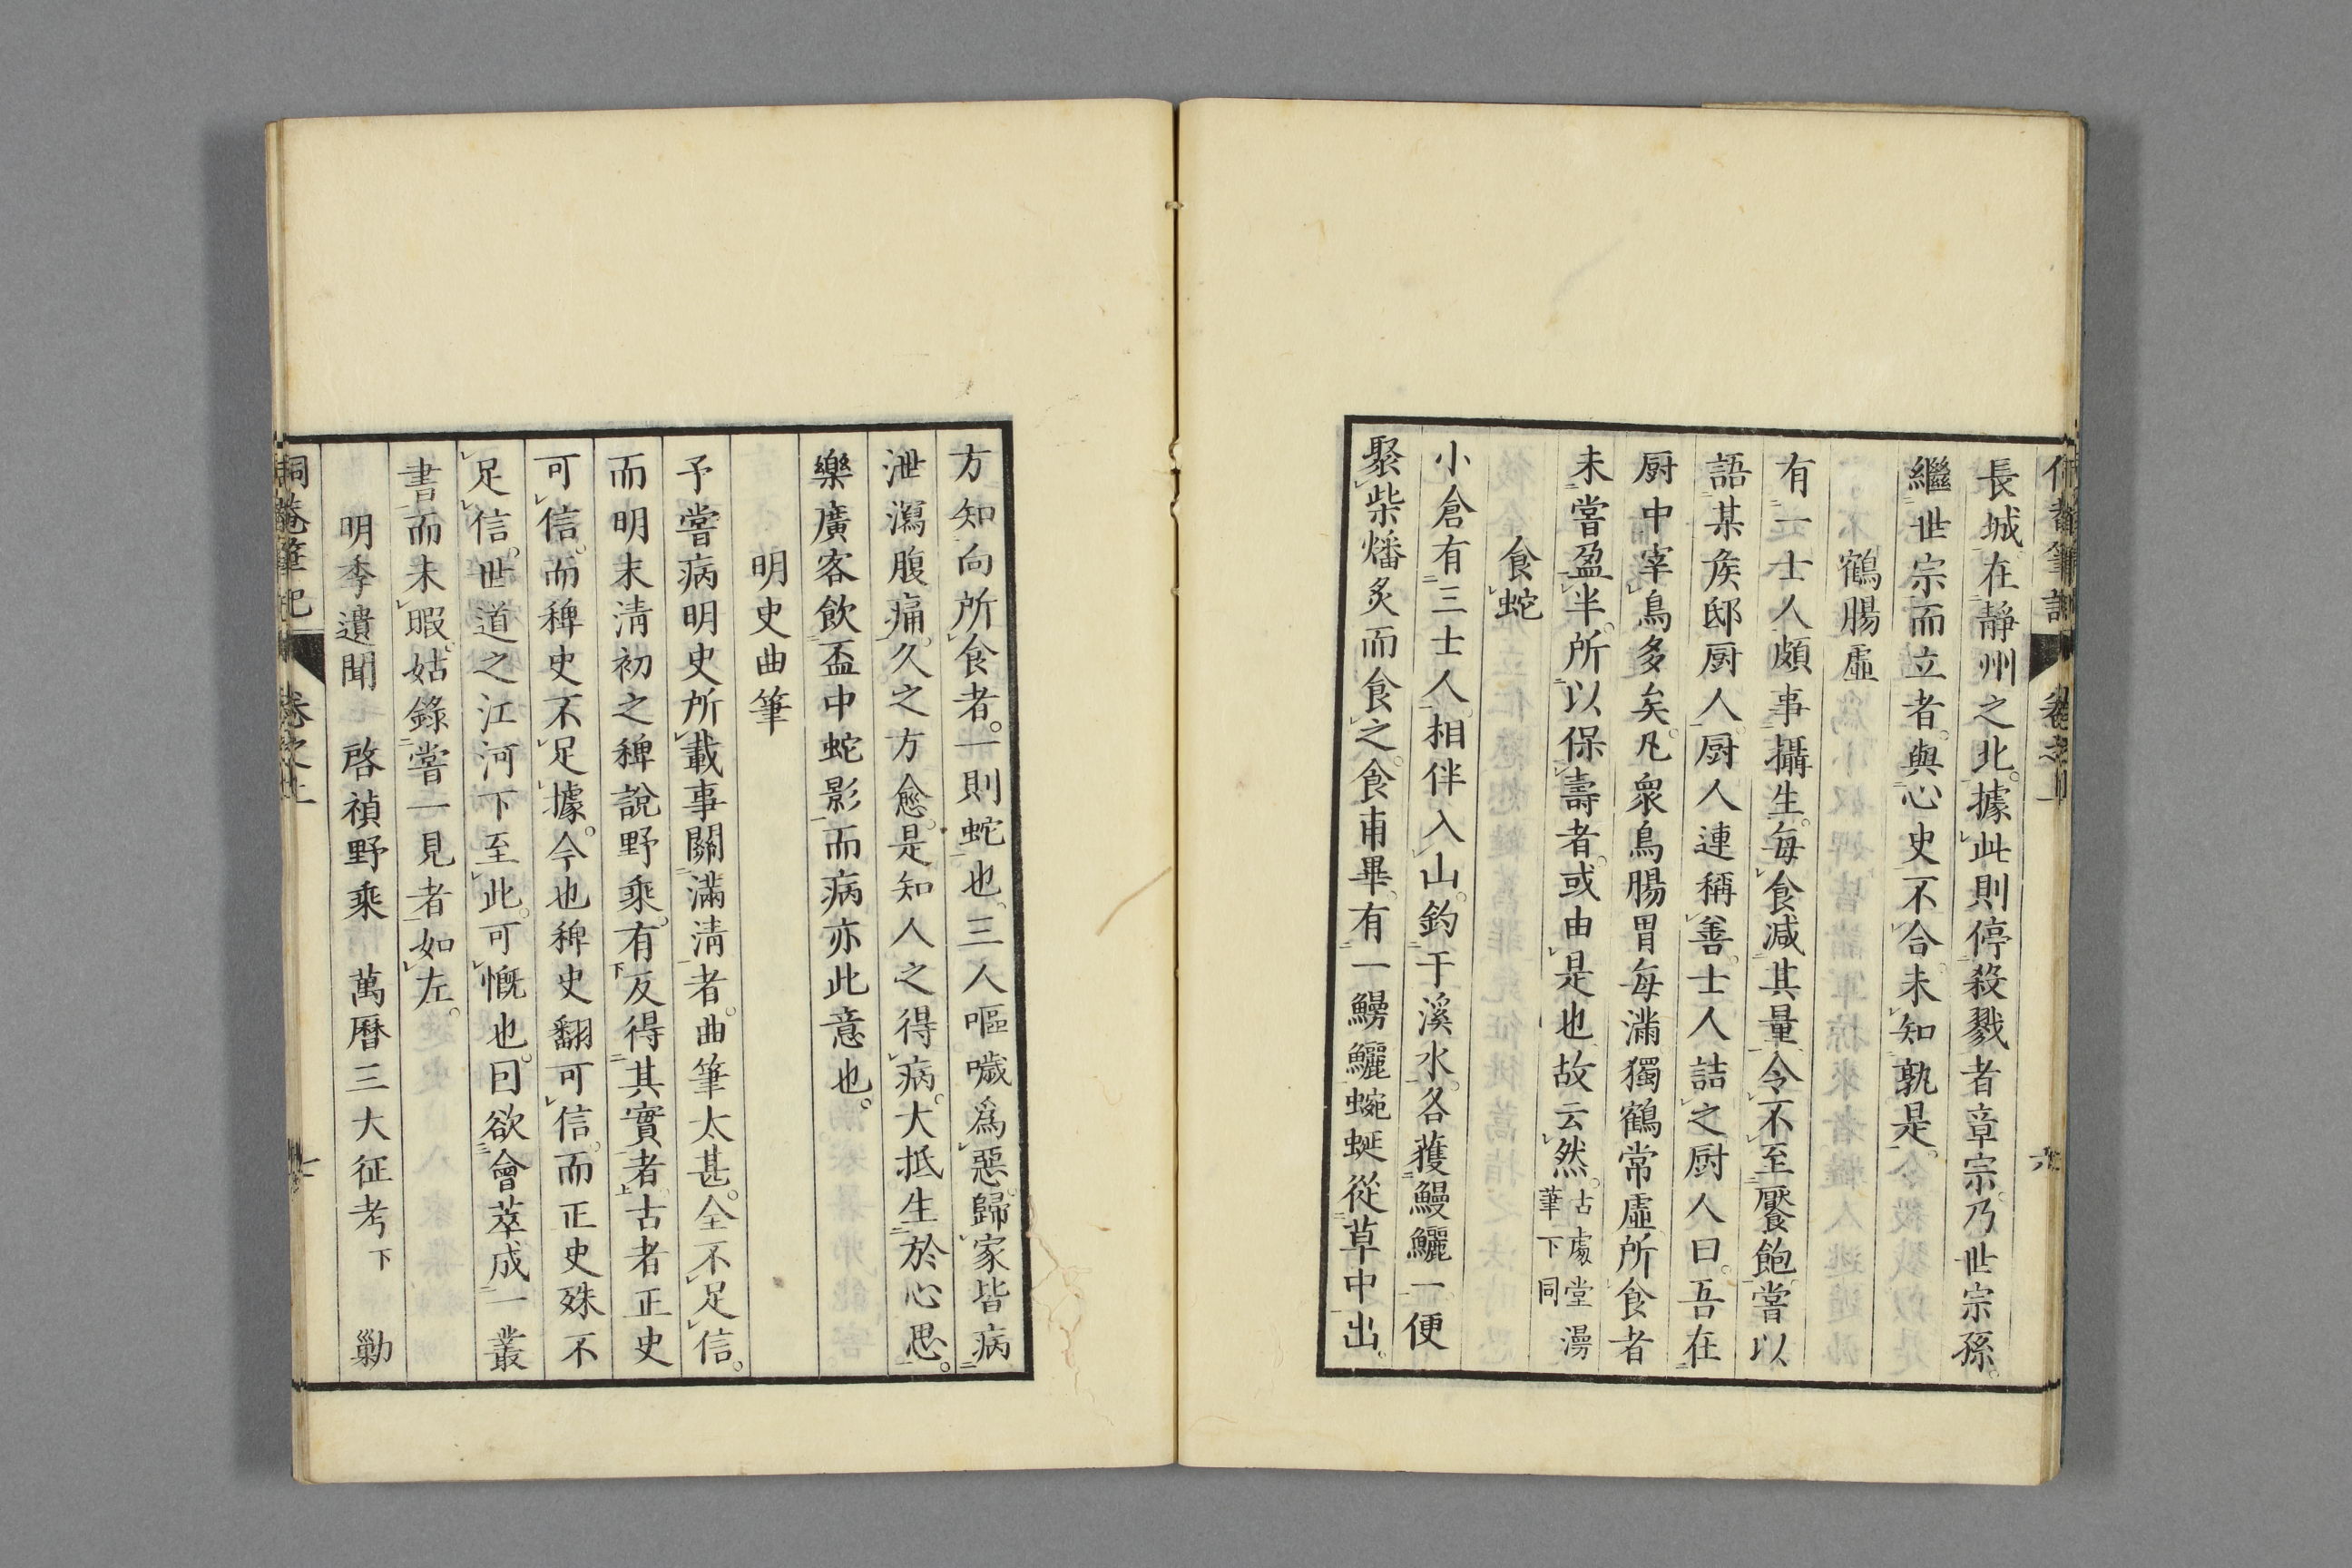 長城。在靜州之北。據此則停殺戮者章宗。乃世宗孫。
繼世宗而立者。與心史不合。未知孰是。
鶴腸虛
有一士人。頗事攝生。每食減其量。令不至饜飽。嘗以
語某矦邸厨人。厨人連稱善。士人詰之。厨人曰。吾在
厨中宰鳥多矣。凡衆鳥腸胃每滿。獨鶴常虛。所食者
未嘗盈半。所以保壽者。或由是也。故云然。古處堂漫
筆下同
食蛇
小倉有三士人。相伴入山。釣于溪水。各獲鰻鱺一。便
聚柴燔炙而食之。食甫畢。有一鰻鱺蜿蜒從草中出。
方知向所食者。一則蛇也。三人嘔噦爲惡。歸家皆病
泄瀉腹痛。久之方愈。是知人之得病。大抵生於心思。
樂廣客飮盃中蛇影而病亦此意也。
明史曲筆
予嘗病明史所載事關滿淸者。曲筆太甚。全不足信。
而明末淸初之稗說野乘。有反得其實者。古者正史
可信。而稗史不足據。今也稗史翻可信。而正史殊不
足信。世道之江河下至此。可慨也。囙欲會萃成一叢
書而未暇。姑錄嘗一見者如左。
明季遺聞 啓禎野乘 萬曆三大征考下 勦
侗菴筆記 卷之上 七